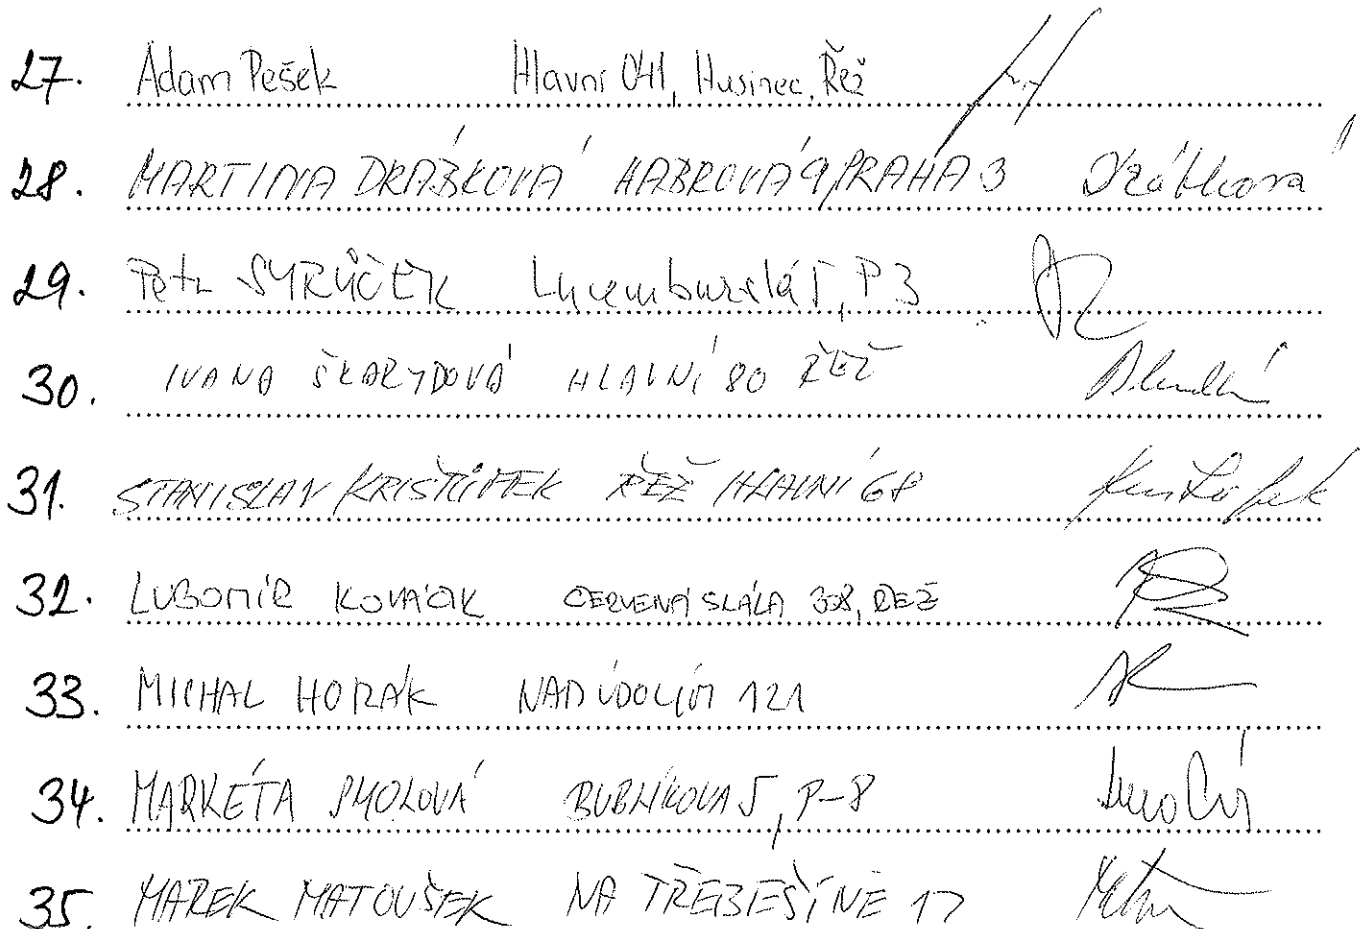 27. Adam Pešek Hlavní 041, Husinec, Řež
28. MARTINA DRÁBKOVÁ HABROVÁ 9 PRAHA 3 Drábková
29. Petr SYRŮČEK Lucemburská 5, P3
30. IVANA ŠKARYDOVÁ HLAVNÍ 80 ŘEŽ
31. STANISLAV KRIŠTŮFEK ŘEŽ HLAVNÍ 68 Krištůfek
32. LUBOMÍR KOVÁČIK ČERVENÁ SKÁLA 308, ŘEŽ
33. MICHAL HORÁK NAD ÚDOLÍM 121
34. MARKÉTA SMOLOVÁ BUBLÍKOVA 5, P-8
35. MAREK MATOUŠEK NA TŘEBEŠÍNĚ 17